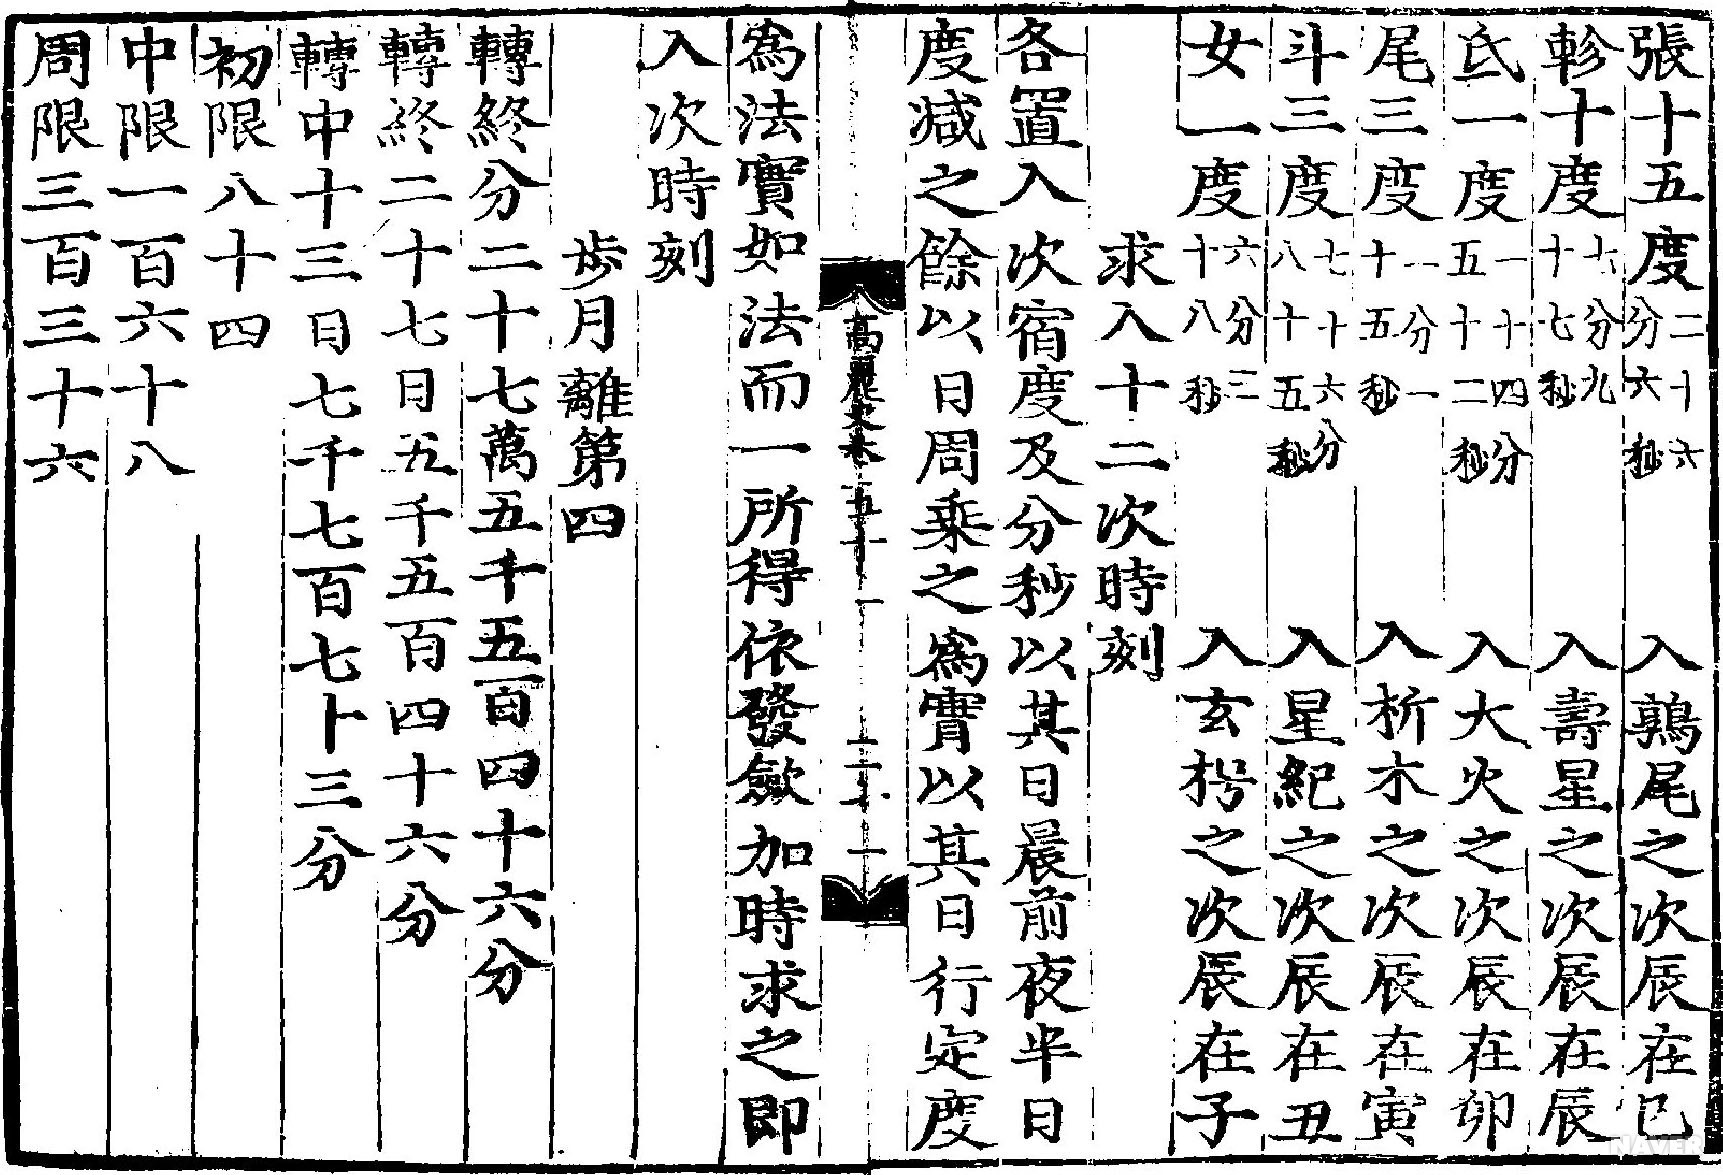 張十五度二十六分六秒 入鶉尾之次辰在巳
軫十度七分九十七秒 入壽星之次辰在辰
氐一度一十四分五十二秒 入大火之次辰在卯
尾三度一分一十五秒 入析木之次辰在寅
斗三度七十六分八十五秒 入星紀之次辰在丑
女一度六分三十八秒 入玄枵之次辰在子
求入十二次時刻
各置入次宿度及分秒以其日晨前夜半日
度减之餘以日周乗之爲實以其日行定度
高麗史卷五十一
二十一
爲法實如法而一所得依發斂加時求之即
入次時刻
歩月離第四
轉終分二十七萬五千五百四十六分
轉終二十七日五千五百四十六分
轉中十三日七千七百七十三分
初限八十四
中限一百六十八
周限三百三十六
NAVER